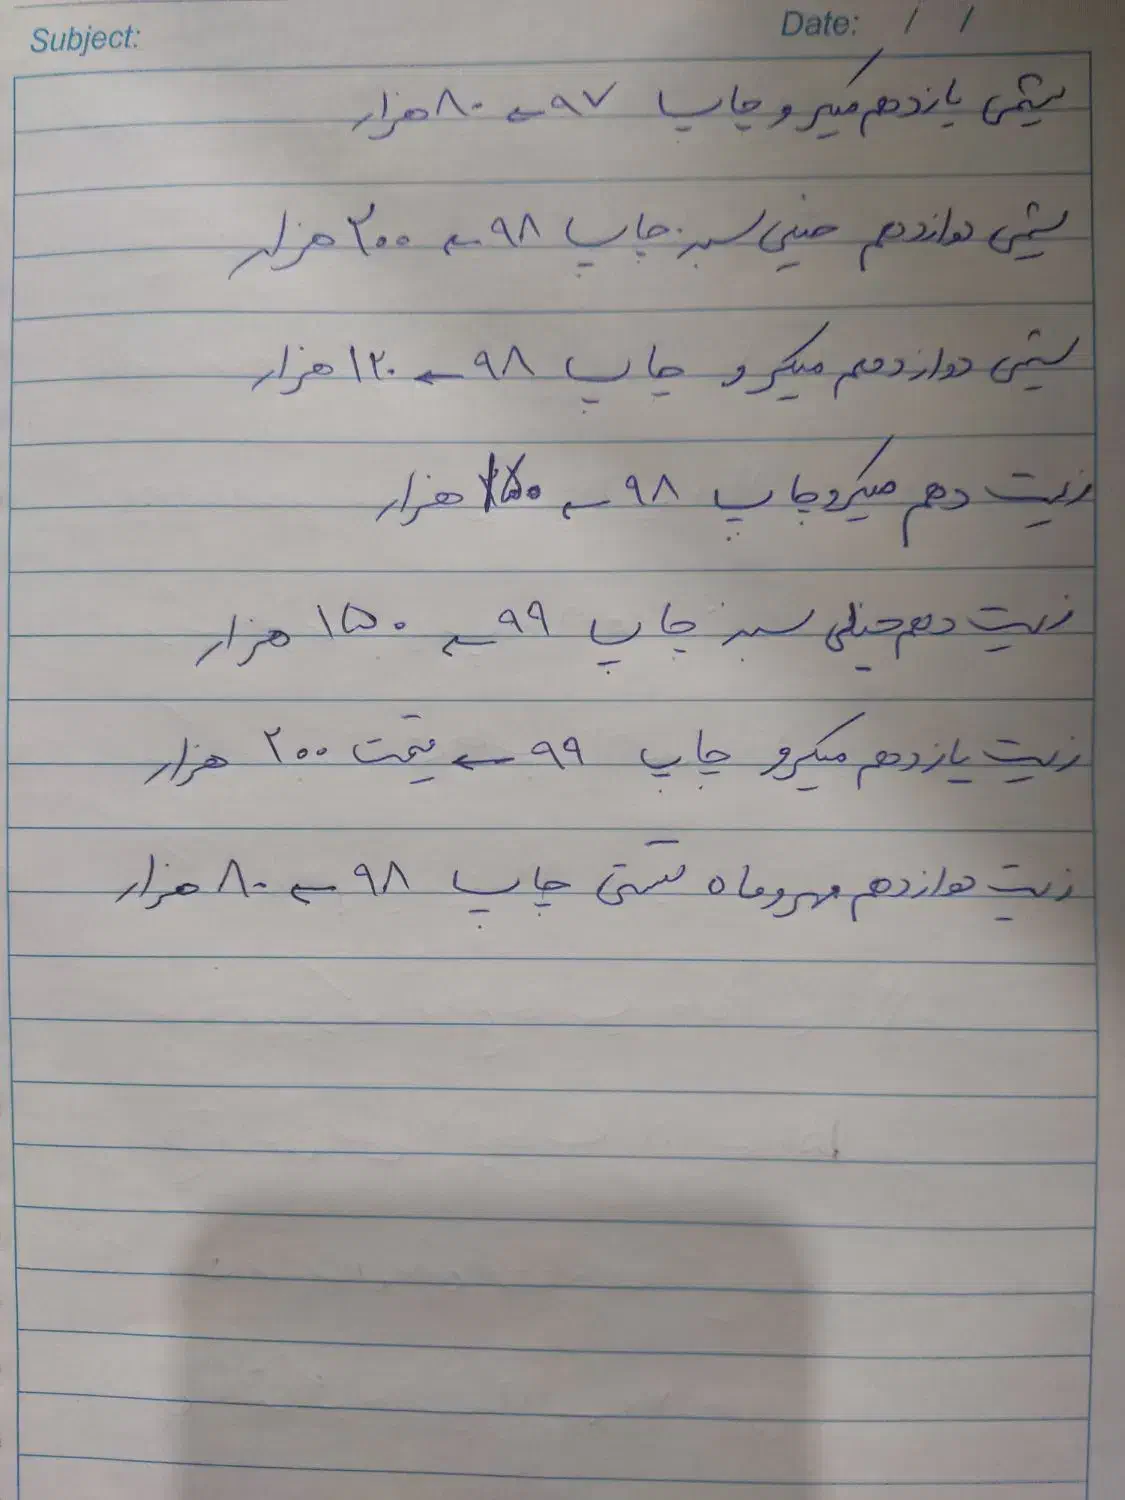 Subject:
Date: / /
شیمی یازدهم میکرو چاپ ۹۷ ← ۸۰ هزار
شیمی دوازدهم خیلی سبز چاپ ۹۸ ← ۲۰۰ هزار
شیمی دوازدهم میکرو چاپ ۹۸ ← ۱۲۰ هزار
زیست دهم میکرو چاپ ۹۸ ← هزار
زیست دهم خیلی سبز چاپ ۹۹ ← ۱۵۰ هزار
زیست یازدهم میکرو چاپ ۹۹ ← قیمت ۲۰۰ هزار
زیست دوازدهم مهروماه تستی چاپ ۹۸ ← ۸۰ هزار